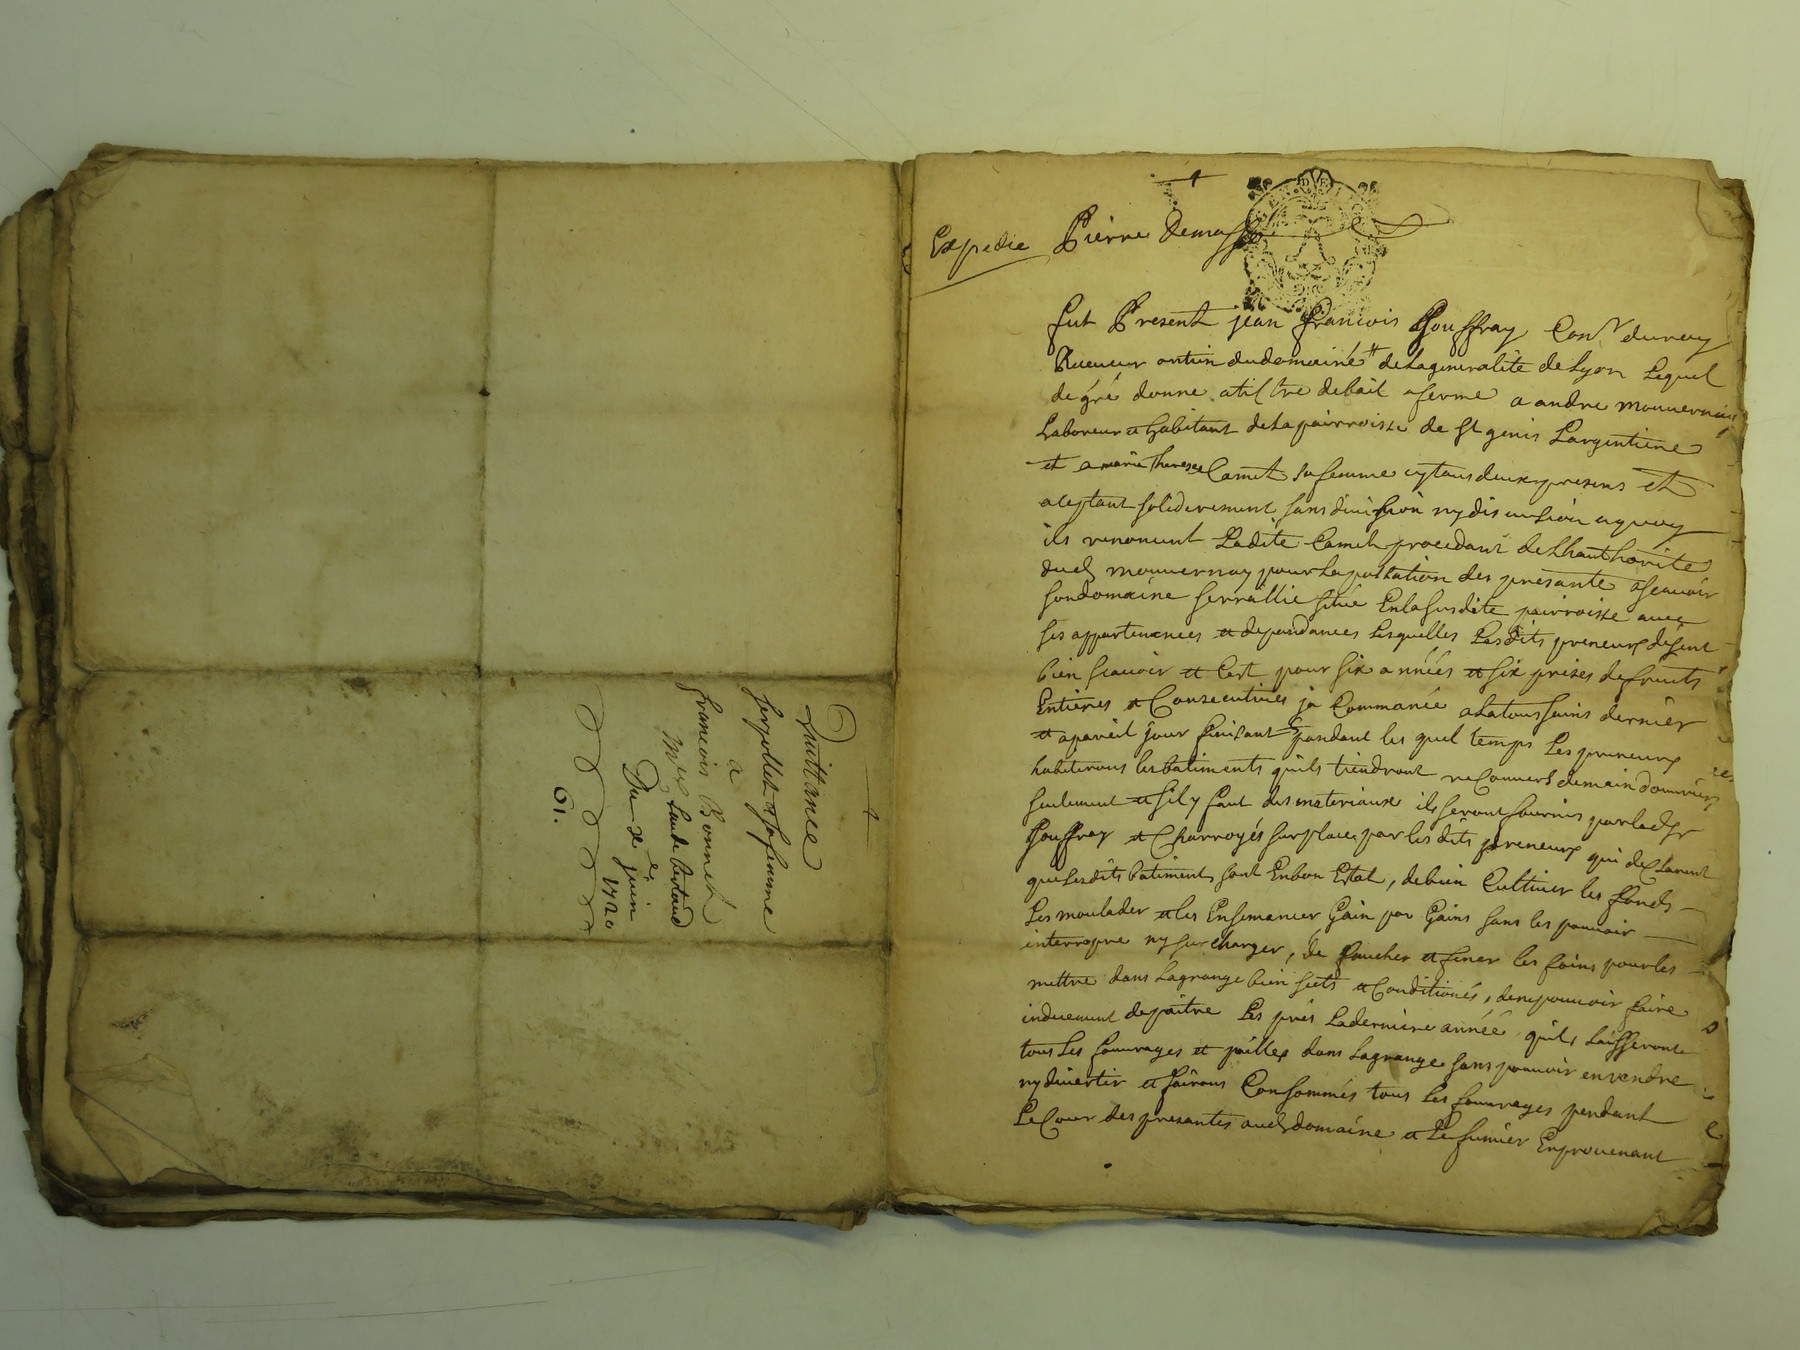 Quittance
Serpollet et sa femme
a
francois Bonnet
Du 2e juin
1720
61.
Expedie Pierre Demasso
fut Present jean francois Gouffray Conr du roy
Receueur antien du domaine de la generalité de Lyon Lequel
de gré donne a tiltre de bail a ferme a andre mouuernay
Laboreur et habitant de la pairroisse de St genis Largentiere
et a marie Therese Camet sa femme cy tous deux presens et
aceptant soliderement sans diuission ny discussion a quoy
ils renoncent Ladite Camet procedant de Lhauthorité
dud mouuernay pour La passation des presante ascauoir
son domaine Serraillie situé En la susdite pairroisse auec
ses appartenences et dependances Lesquelles Lesdits preneurs disent
bien scauoir et Cest pour six années et six prises de fruits
Entieres et Consecutiues ja Commancé a La toussains dernier
et a pareil jour finisant pendant les quel temps Les preneurs
habiterons les batiments quils tiendront recouuers de main douurier
seulement et sil y faut des materiaux ils seront fournis par led Sr
Gouffray et Charroyés sur place par lesdits preneurs qui declarent
que lesdits batiments sont En bon Estat, de bien Cultiuer les fonds
Les moulader et les Ensemancer Gain par Gains sans les pouuoir
interropre ny surcharger, de faucher et fener les foins pour les
mettre dans La grange bien sects et Conditionés, de ne pouuoir faire
induement depaitre Les prés La derniere année quils Laisseront
tous Les fourrages et pailles dans La grange sans pouuoir en vendre
ny diuertir et fairons Consommés tous Les fourrages pendant
Le Cour des presantes aud domaine et Le fumier En prouenant